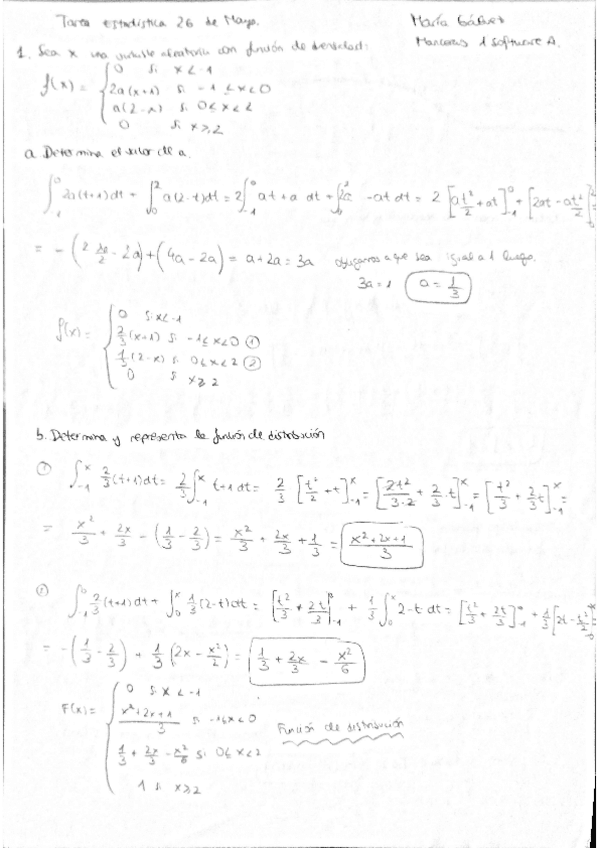 Tarea estadística 26 de Mayo. María
1. Sea x una variable aleatoria con función de densidad: 1 Software A.
f(x) = { 0 si x < -1
2a(x+1) si -1 ≤ x < 0
a(2-x) si 0 ≤ x < 2
0 si x ≥ 2
a. Determina el valor de a.
∫_{-1}^{0} 2a(t+1)dt + ∫_{0}^{2} a(2-t)dt = 2∫_{-1}^{0} at + a dt + ∫_{0}^{2} 2a - at dt = 2 [at²/2 + at]_{-1}^{0} + [2at - at²/2]_{0}^{2} =
= - (2 a/2 - 2a) + (4a - 2a) = a + 2a = 3a obligamos a que sea igual a 1 luego.
3a = 1 a = 1/3
f(x) = { 0 si x < -1
2/3 (x+1) si -1 ≤ x < 0 ①
1/3 (2-x) si 0 ≤ x < 2 ②
0 si x ≥ 2
b. Determina y representa la función de distribución
① ∫_{-1}^{x} 2/3 (t+1)dt = 2/3 ∫_{-1}^{x} t+1 dt = 2/3 [t²/2 + t]_{-1}^{x} = [2t²/3·2 + 2/3 t]_{-1}^{x} = [t²/3 + 2/3 t]_{-1}^{x} =
= x²/3 + 2x/3 - (1/3 - 2/3) = x²/3 + 2x/3 + 1/3 = x²+2x+1/3
② ∫_{-1}^{0} 2/3 (t+1)dt + ∫_{0}^{x} 1/3 (2-t)dt = [t²/3 + 2t/3]_{-1}^{0} + 1/3 ∫_{0}^{x} 2-t dt = [t²/3 + 2t/3]_{-1}^{0} + 1/3 [2t - t²/2]_{0}^{x}
= - (1/3 - 2/3) + 1/3 (2x - x²/2) = 1/3 + 2x/3 - x²/6
F(x) = { 0 si x < -1
x²+2x+1/3 si -1 ≤ x < 0 Función de distribución
1/3 + 2x/3 - x²/6 si 0 ≤ x < 2
1 si x ≥ 2